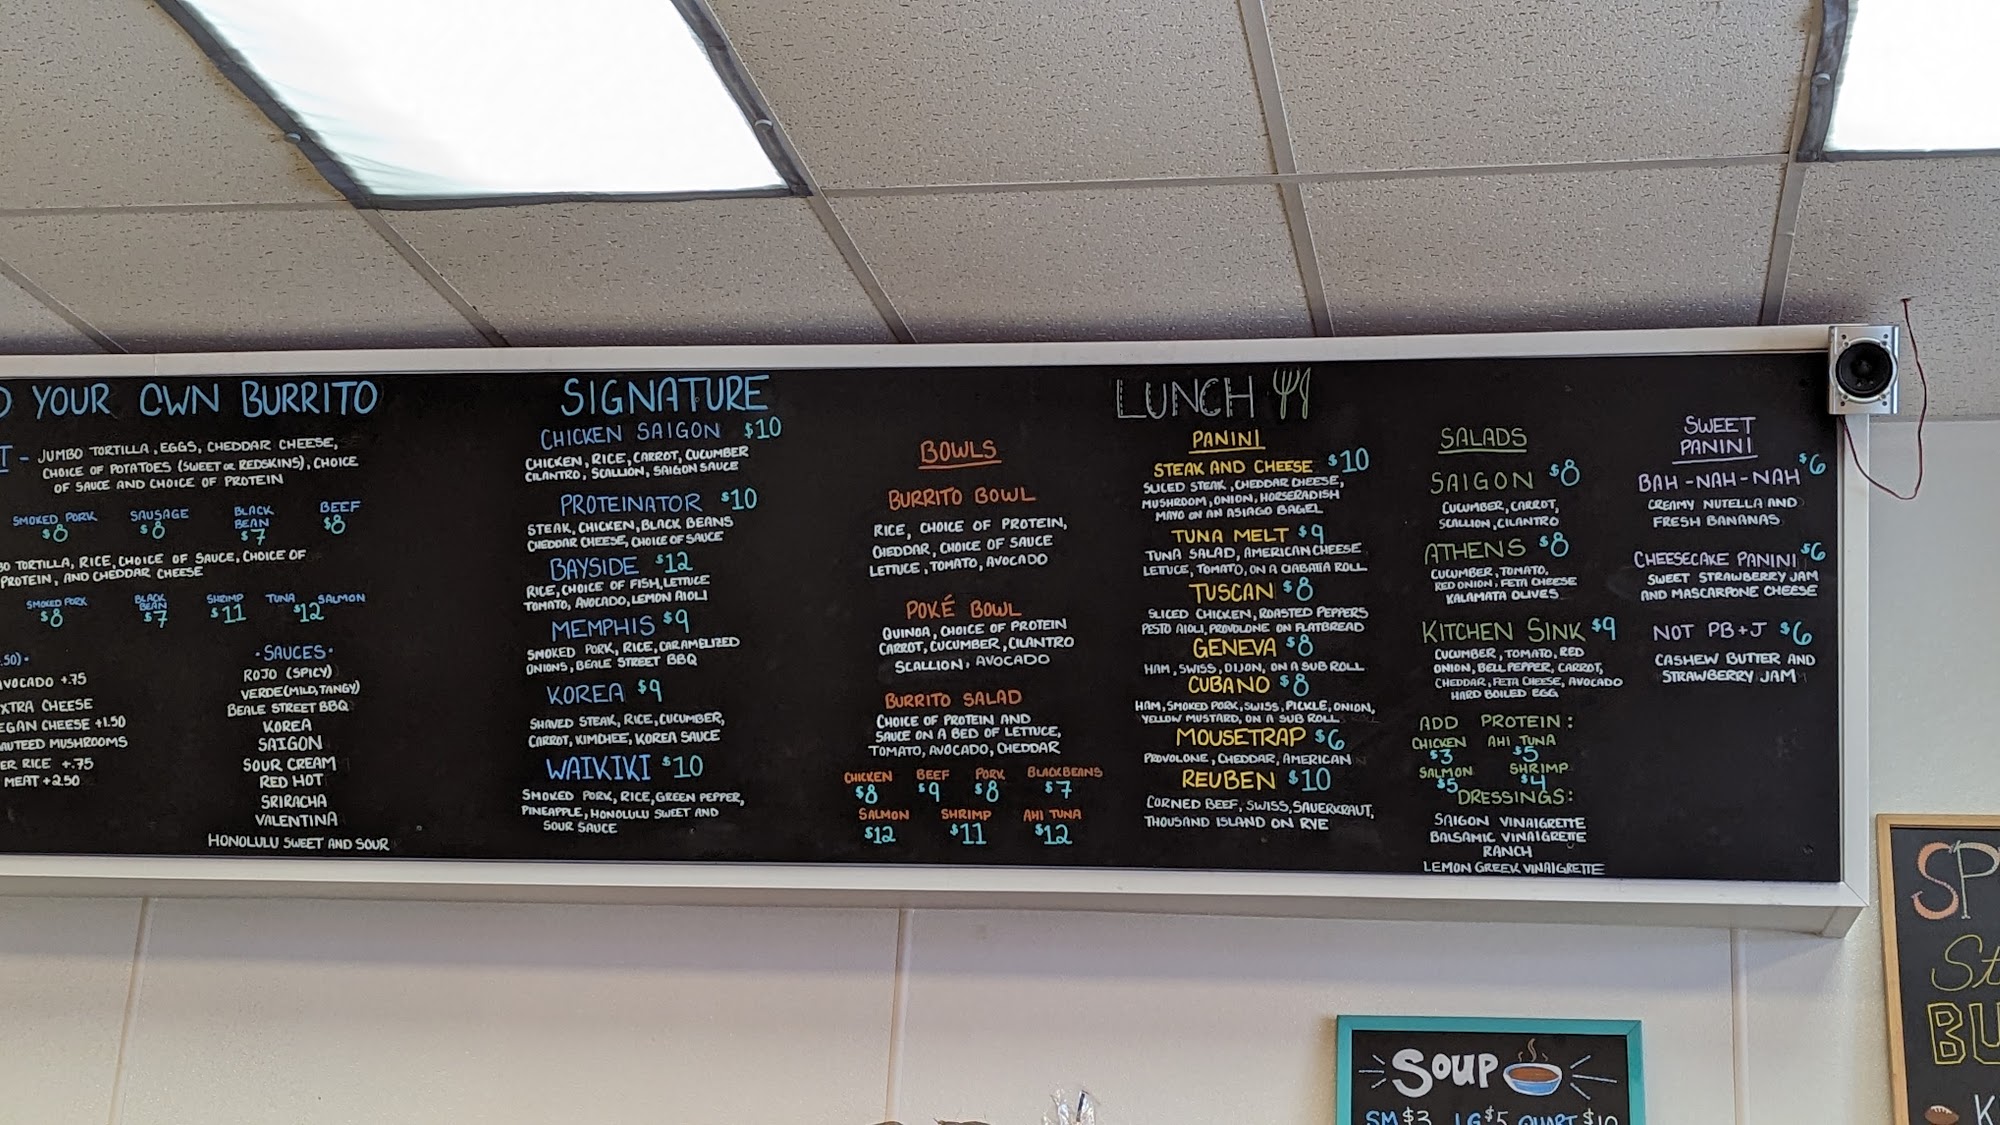 YOUR OWN BURRITO
- JUMBO TORTILLA, EGGS, CHEDDAR CHEESE,
CHOICE OF POTATOES (SWEET OR REDSKINS), CHOICE
OF SAUCE AND CHOICE OF PROTEIN
SMOKED PORK SAUSAGE BLACK BEAN BEEF
$8 $8 $7 $8
TORTILLA, RICE, CHOICE OF SAUCE, CHOICE OF
PROTEIN, AND CHEDDAR CHEESE
SMOKED PORK BLACK BEAN SHRIMP TUNA SALMON
$8 $7 $11 $12
.50)•
VOCADO +.75
XTRA CHEESE
EGAN CHEESE +1.50
AUTEED MUSHROOMS
ER RICE +.75
MEAT +2.50
•SAUCES•
ROJO (SPICY)
VERDE(MILD,TANGY)
BEALE STREET BBQ
KOREA
SAIGON
SOUR CREAM
RED HOT
SRIRACHA
VALENTINA
HONOLULU SWEET AND SOUR
SIGNATURE
CHICKEN SAIGON $10
CHICKEN, RICE, CARROT, CUCUMBER
CILANTRO, SCALLION, SAIGON SAUCE
PROTEINATOR $10
STEAK, CHICKEN, BLACK BEANS
CHEDDAR CHEESE, CHOICE OF SAUCE
BAYSIDE $12
RICE, CHOICE OF FISH, LETTUCE
TOMATO, AVOCADO, LEMON AIOLI
MEMPHIS $9
SMOKED PORK, RICE, CARAMELIZED
ONIONS, BEALE STREET BBQ
KOREA $9
SHAVED STEAK, RICE, CUCUMBER,
CARROT, KIMCHEE, KOREA SAUCE
WAIKIKI $10
SMOKED PORK, RICE, GREEN PEPPER,
PINEAPPLE, HONOLULU SWEET AND
SOUR SAUCE
LUNCH
BOWLS
BURRITO BOWL
RICE, CHOICE OF PROTEIN,
CHEDDAR, CHOICE OF SAUCE
LETTUCE, TOMATO, AVOCADO
POKÉ BOWL
QUINOA, CHOICE OF PROTEIN
CARROT, CUCUMBER, CILANTRO
SCALLION, AVOCADO
BURRITO SALAD
CHOICE OF PROTEIN AND
SAUCE ON A BED OF LETTUCE,
TOMATO, AVOCADO, CHEDDAR
CHICKEN BEEF PORK BLACKBEANS
$8 $9 $8 $7
SALMON SHRIMP AHI TUNA
$12 $11 $12
PANINI
STEAK AND CHEESE $10
SLICED STEAK, CHEDDAR CHEESE,
MUSHROOM, ONION, HORSERADISH
MAYO ON AN ASIAGO BAGEL
TUNA MELT $9
TUNA SALAD, AMERICAN CHEESE
LETTUCE, TOMATO, ON A CIABATTA ROLL
TUSCAN $8
SLICED CHICKEN, ROASTED PEPPERS
PESTO AIOLI, PROVOLONE ON FLATBREAD
GENEVA $8
HAM, SWISS, DIJON, ON A SUB ROLL
CUBANO $8
HAM, SMOKED PORK, SWISS, PICKLE, ONION,
YELLOW MUSTARD, ON A SUB ROLL
MOUSETRAP $6
PROVOLONE, CHEDDAR, AMERICAN
REUBEN $10
CORNED BEEF, SWISS, SAUERKRAUT,
THOUSAND ISLAND ON RYE
SALADS
SAIGON $8
CUCUMBER, CARROT,
SCALLION, CILANTRO
ATHENS $8
CUCUMBER, TOMATO,
RED ONION, FETA CHEESE
KALAMATA OLIVES
KITCHEN SINK $9
CUCUMBER, TOMATO, RED
ONION, BELL PEPPER, CARROT,
CHEDDAR, FETA CHEESE, AVOCADO
HARD BOILED EGG
ADD PROTEIN:
CHICKEN AHI TUNA
$3 $5
SALMON SHRIMP
$5 $4
DRESSINGS:
SAIGON VINAIGRETTE
BALSAMIC VINAIGRETTE
RANCH
LEMON GREEK VINAIGRETTE
SWEET
PANINI
BAH-NAH-NAH $6
CREAMY NUTELLA AND
FRESH BANANAS
CHEESECAKE PANINI $6
SWEET STRAWBERRY JAM
AND MASCARPONE CHEESE
NOT PB+J $6
CASHEW BUTTER AND
STRAWBERRY JAM
SOUP
SM $3 LG $5 QUART $10
SP
St
BU
K